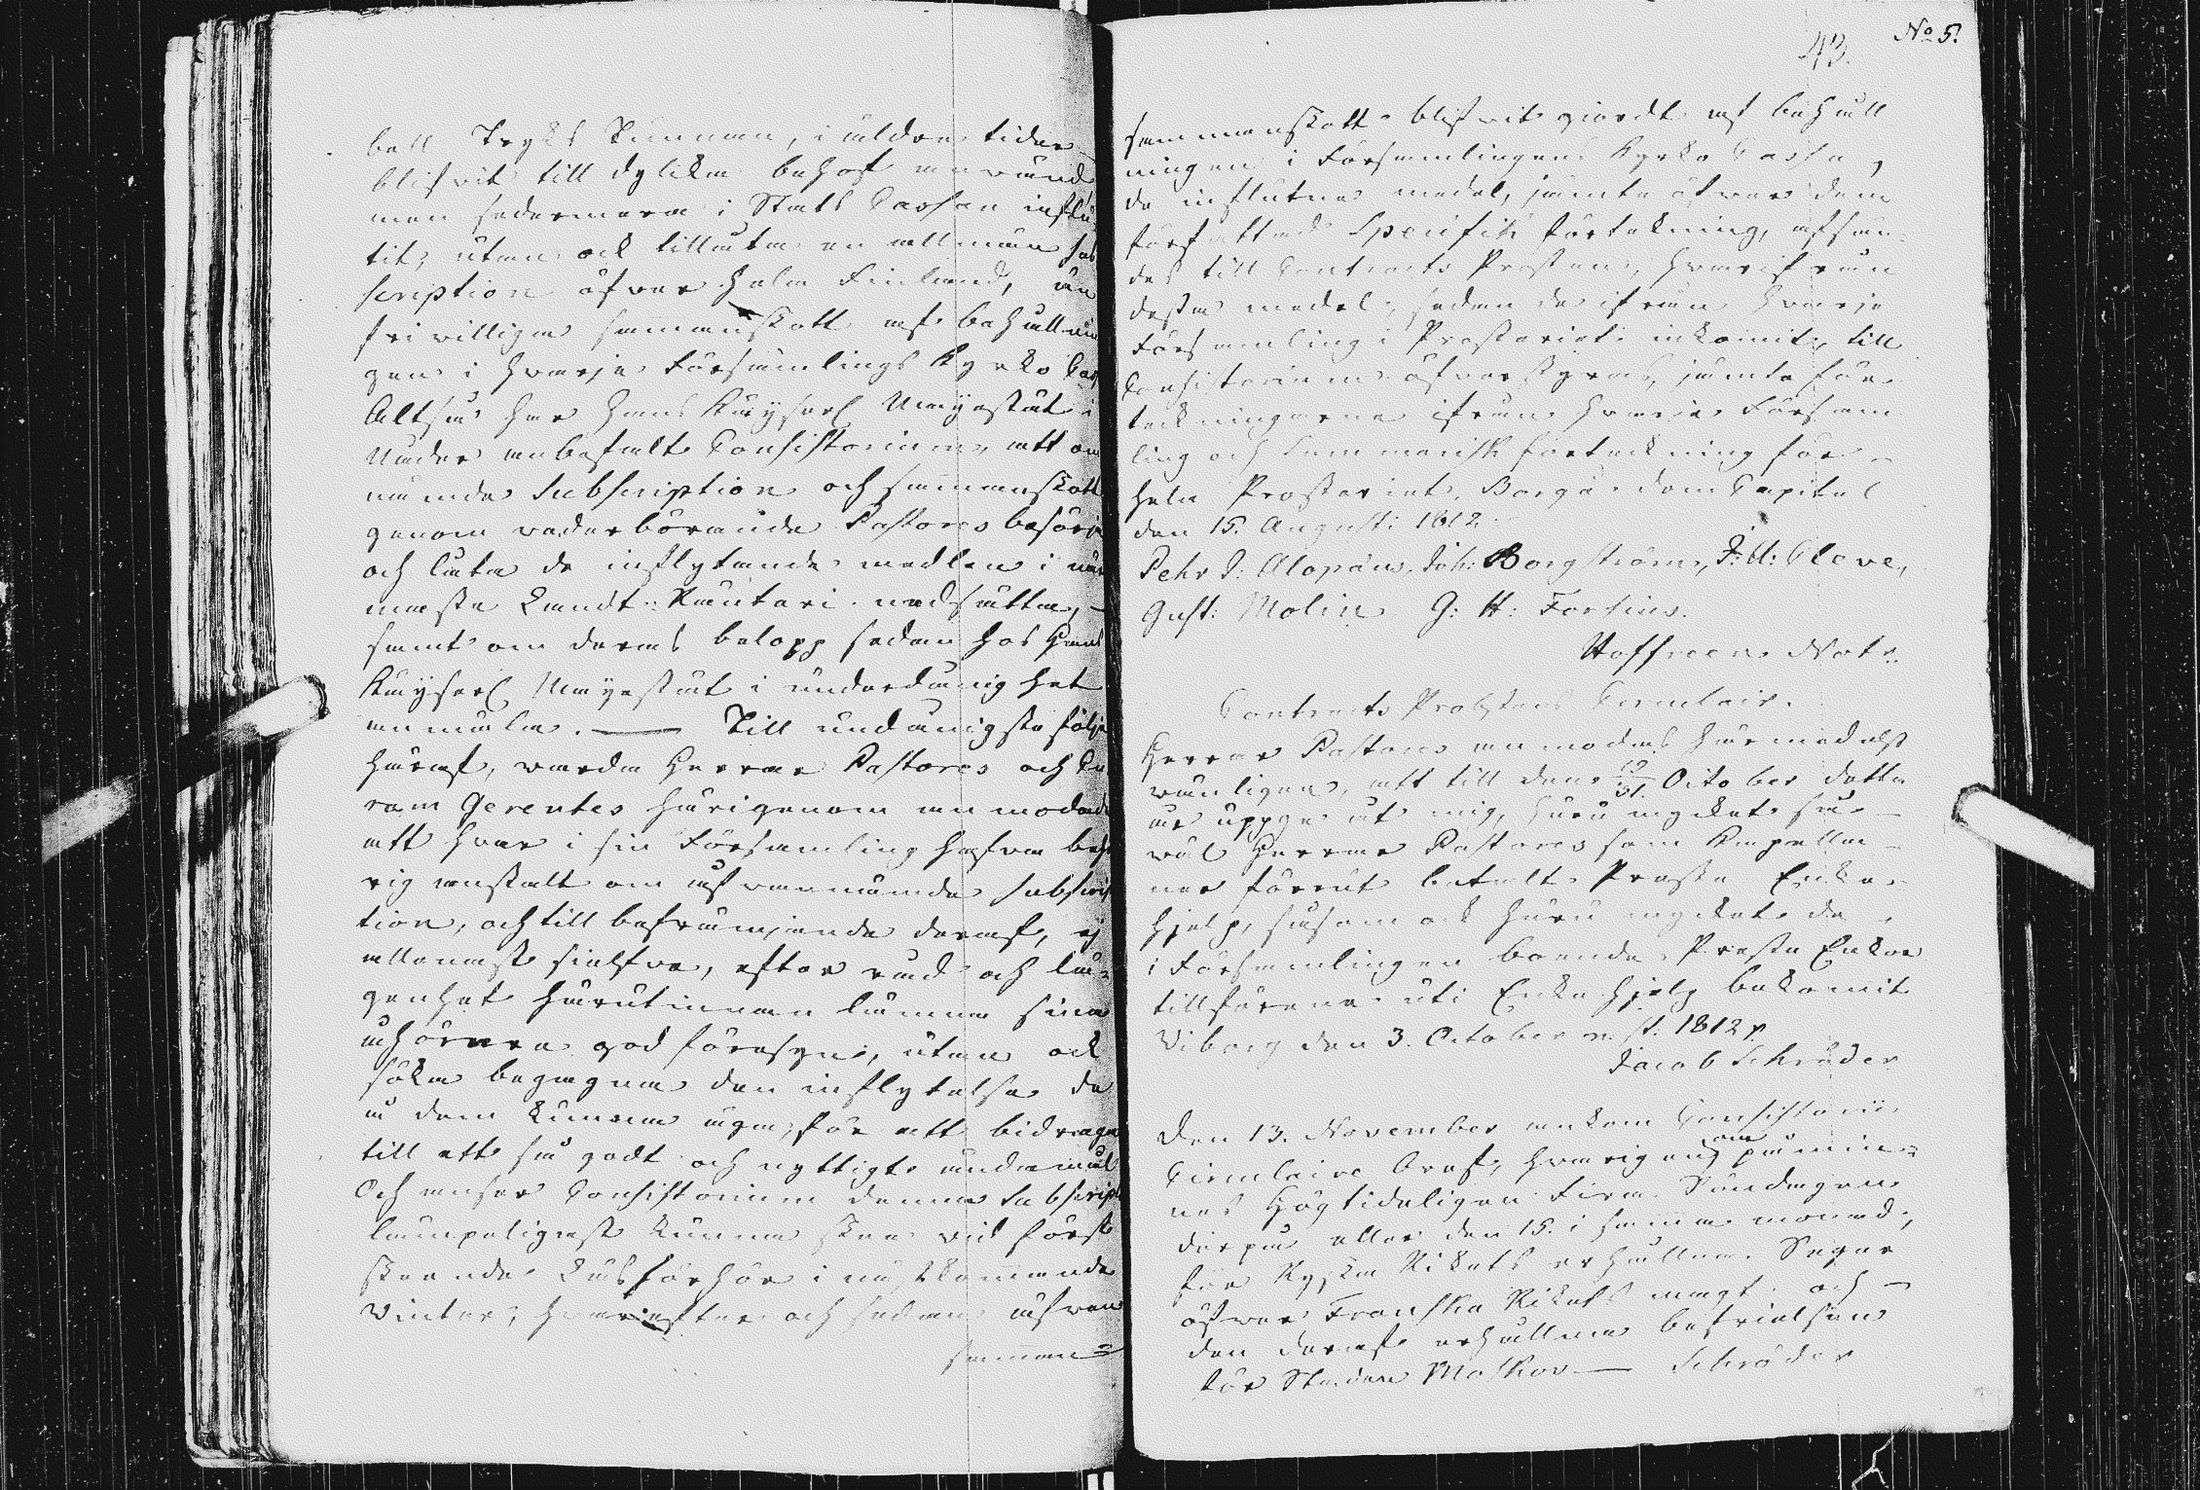 ball Tryks Summan, i äldre tider
blifvit till dylika behof använd
men sedermera i Stats Cassan influ
tit; utan ock tillåta en allmän sub
scription öfver hela Finland, än
frivilliga sammanskott af behålnin
gen i hvarje Församlings Kyrko Cas
Altså har Hans Kayserl Mayestät i
Nåder anbefalt Consistorium, att om
nämnda Subscription och sammanskott
genom vederbörande Pastores besörja
och låta de inflytande medlen i när
maste Landt-Ränteri nedsättas,
samt om deras belopp sedan hos Hans
Kayserl Mayestät i underdånighet
anmäla. — Till undånigste följe
häraf, warda Herrar Pastores och Sa
rum Gerentes härigenom anmodade
att hvar i sin Församling hafva behö
rig anstalt om ofvannämnde subscrip
tion, och till befrämjande deraf, ej
allenast sielfve, efter råd och lä-
genhet härutinnan lemna sina
åhörare god föresyn, utan ock
söka begagna den inflytelse de
å dem kunna äga, för att bidraga
till ett så godt och nyttigt ändamål
Och anser Consistorium denna Subscript
lämpeligast kunna ske vid först
skeende Läsförhör i nästkommande
Vinter; hvarefter och sedan äfven
samman=
No 5.
43.
sammanskott blifvit giordt af behåll
ningen i Församlingens Kyrko Cassa,
de influtne medel, jämte öfver dem
författad Specifik förtekning, afsän-
des till Contracts Prosten, hvarifrån
desse medel, sedan de ifrån hvarje
Församling i Prosteriet inkomit, till
Consistorium öfverstyras, jämte för
teckningarne ifrån hvarje Försam
ling och Summarisk förteckning för
hela Prosteriet. Borgå Dom Capitel
den 15. Augusti 1812.
Pehr J: Alopæus, Joh: Borgström, J: M: Cleve,
Gust: Molin G: H: Forsius.
Hoffreen Nots.
Contracts Probstens Circulair.
Herrar Pastores anmodas härmedelst
wänligen, att till den 19/31. October detta
år uppge åt mig, huru myckit så-
wäl Herrar Pastores som Kapella-
ner förrut betalt Preste Enke
hjelp, såsom ock huru mycket de
i Församlingen boende Preste Enkor
tillförene uti Enke hjelp bekomit
Viborg den 3. October n. st. 1812.
Jacob Schröder
Den 13. November ankom Consistorii
Circulaire Bref, hvarigenom påmin-
nes Högtideligen fira Söndagen
derpå eller den 15. i samma monad,
för Ryska Rikets erhållna Seger
öfver Franska Rikets magt och
den deraf erhållna befrielsen
för Staden Moskov — Schröder